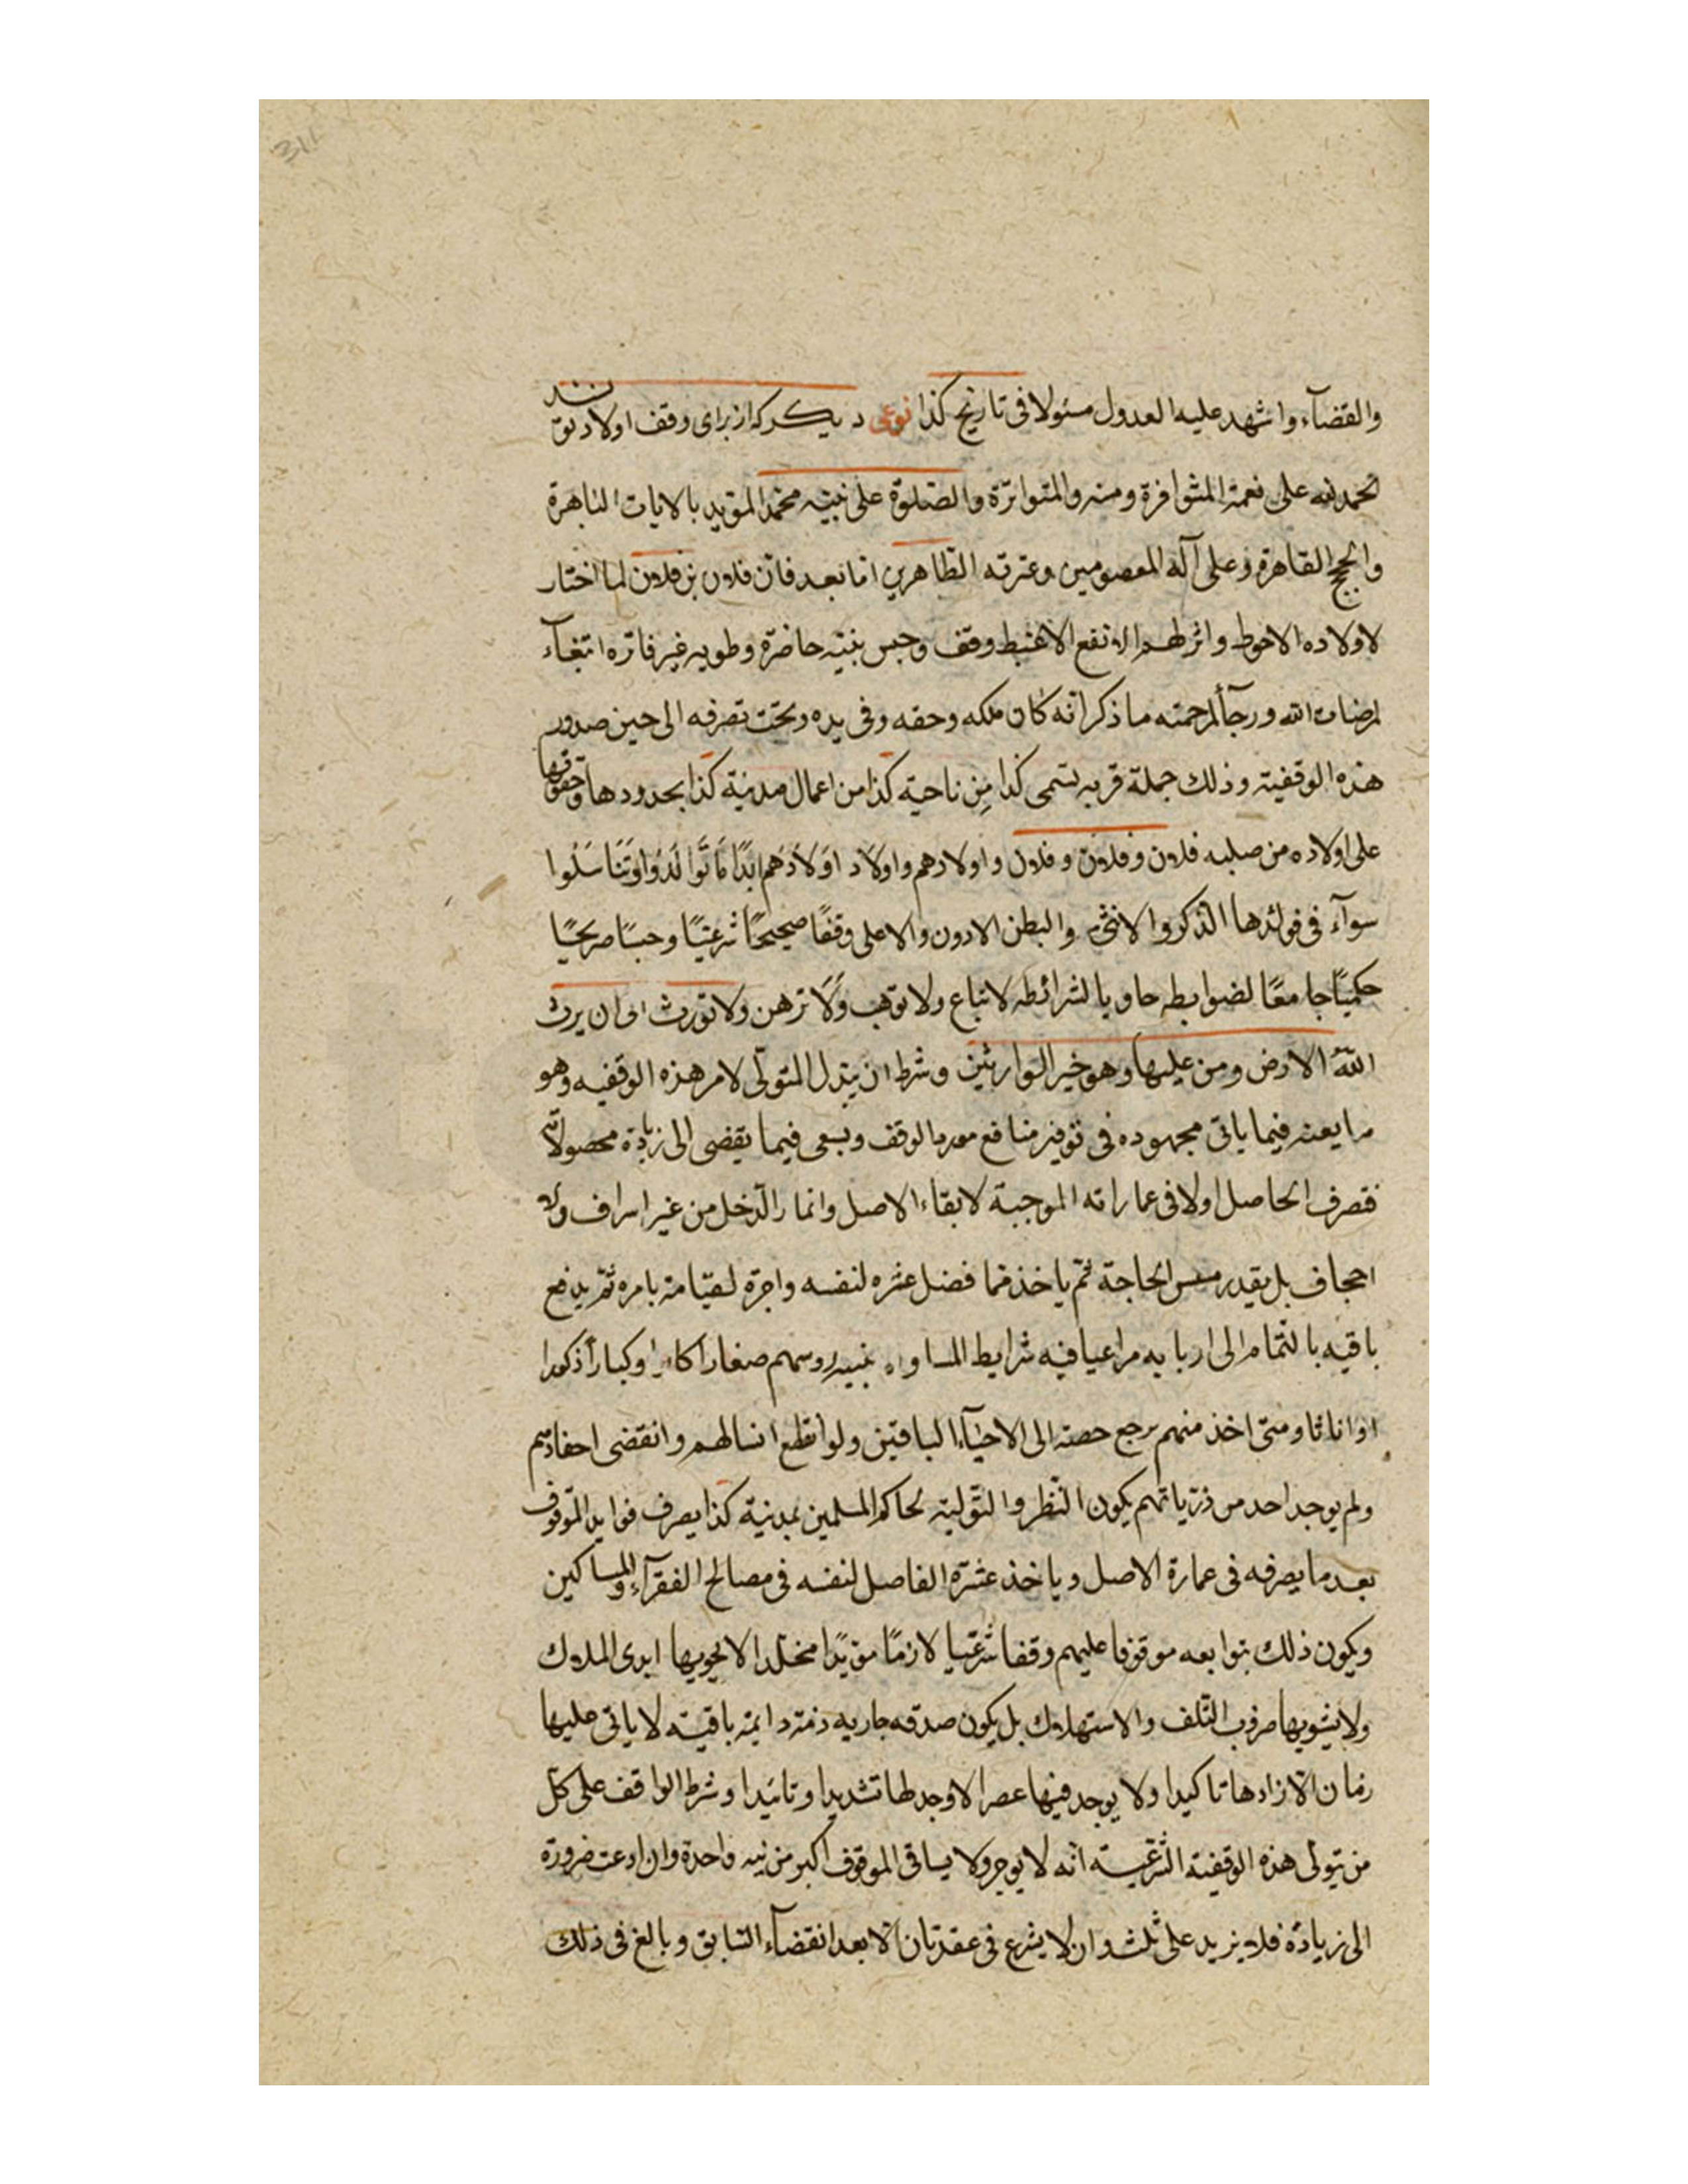 والقضآء واشهد عليه العدول مسئولا فى تاريخ كذا نوعى ديكر كه از براى وقف اولاد نويسند
الحمد لله على نعمة المتوافرة ومنه والمتواترة والصلوة على نبيّه محمّد المؤيد بالايات الباهرة
والحجج القاهرة وعلى آله المعصومين وعترته الطّاهرين امّا بعد فانّ فلان بن فلان لما اختار
لاولاده الاحوط واثر لهم الانفع الاغبط وقف وحبس بنيّة حاضرة وطويه غير فاتره ابتغآء
لمرضات الله ورجآءً لرحمته ما ذكر انّه كان ملكه وحقه وفى يده وتحت تصرفه الى حين صدور
هذه الوقفيّة وذلك جملة قريه تسمى كذا مِن ناحية كذا من اعمال مدنية كذا بحدودها وحقوقها
على اولاده من صلبه فلان وفلان وفلان واولادهم واولاد اَولاَدَهم ابَدًا مَا تَوَالَدُوا وَتَنَاسَلُوا
سوآء فى فوائدها الذكر والانثى والبطن الادون والاعلى وقفًا صحيحًا شرعيًا وحبسًا صريحًا
حكميًا جامعًا لضوابطه حاويا لشرائطه لا تباع ولا توهب وَلَا ترهن ولا تورث الى ان يرث
اللهُ الارض ومن عليها وهو خير الوارثين وشرط ان يبذل المتولّى لامر هذه الوقفيه وهو
فيما ياتى مجهوده فى توفير منافع الوقف ويسعى فيما يقضى الى زيادة محصولاته
فصرف الحاصل اولا فى عماراته الموجبة لابقاء الاصل وانما رالدّخل من غير اسراف ولا
اجحاف بل بقدر الحاجة ثم ياخذ ممّا فضل عشره لنفسه واجرة لقيامه بامره ثمّ يدفع
باقيه بالتمام الى اربابه مراعيا فيه شرايط صغارا كانوا وكبارأ ذكورا
او اناثا ومتى اخذ منهم يرجع حصته الى الاحيآء الباقين ولو انقطع انسالهم وانقضى احفادهم
ولم يوجد احد من ذرّياتهم يكون النّظر والتوّلية لحاكم المسلمين بمدنية كذا يصرف فوايد الموقوف
بعد ما يصرفه فى عمارة الاصل وياخذ عشرة الفاصل لنفسه فى مصالح الفقرآء والمساكين
ويكون ذلك بتوابعه موقوفا عليهم وقفا شرعيا لازمًا مؤبدًا مخلّدا لا يحويها ايدى الملاك
ولا يشوبها صروب التّلف والاستهلاك بل يكون صدقه جاريه دايمة باقيته لا ياتى عليها
زمان الّا زادها تاكيدا ولا يوجد فيها عصر الا وجد لها تشديدا وتائيدا وشرط الواقف على كلّ
من يتولى هذه الوقفية الشّرعيّة انّه لا يوجر ولا يساقى الموقوف اكبر من سنه واحدة وان ادعت ضرورة
الى زيادة فلا يزيد على ثلث وان لا يشرع فى عقد ثان الّا بعد انقضآء السّابق وبالغ فى ذلك